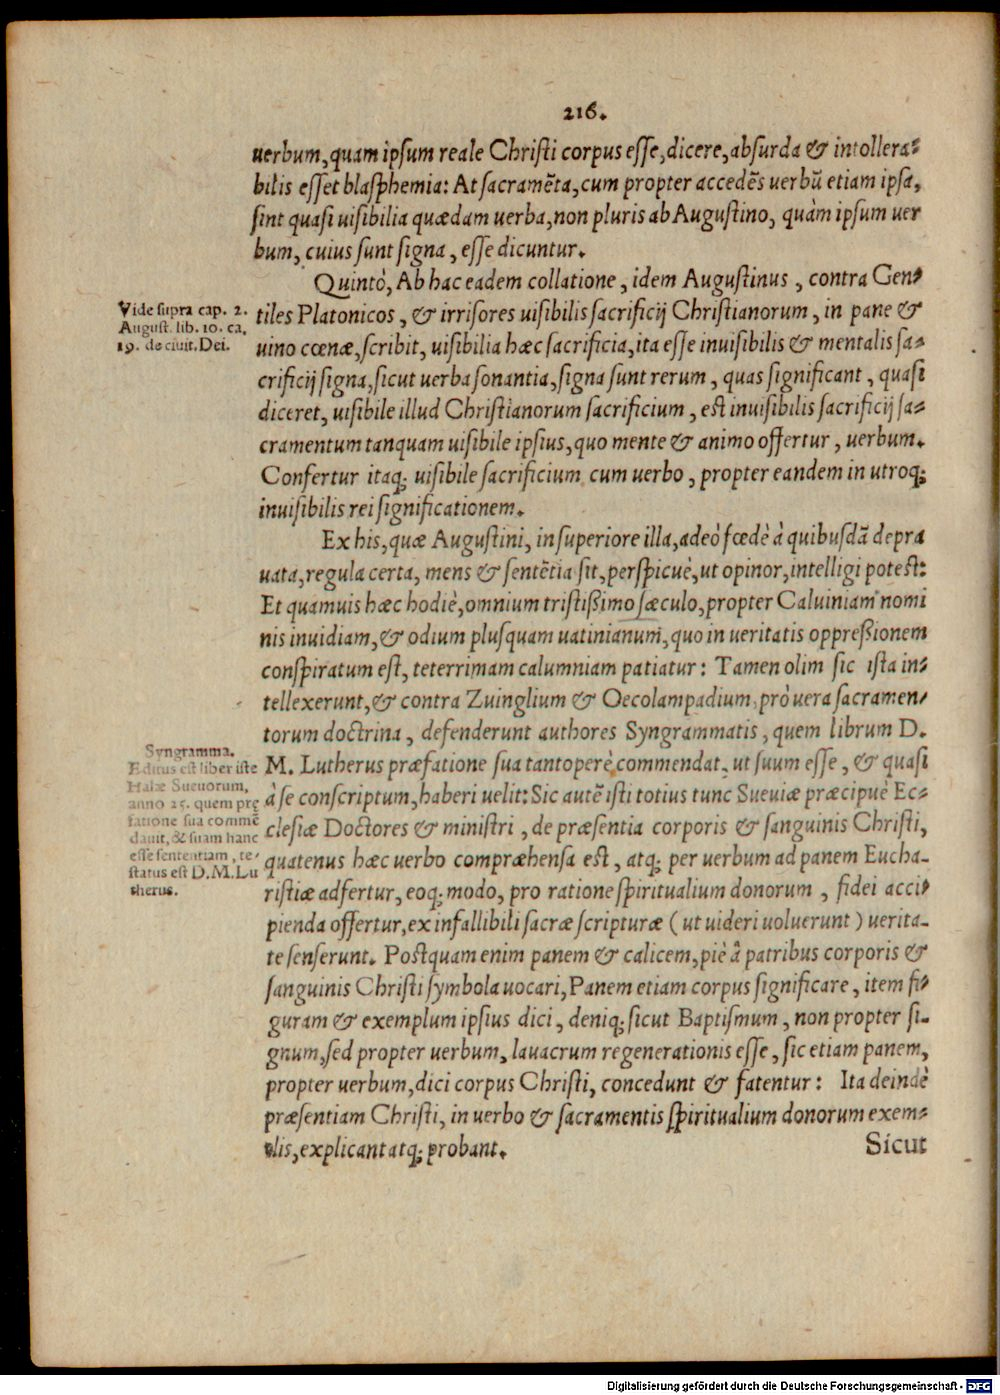 216.
uerbum, quam ipsum reale Christi corpus esse, dicere, absurda & intollera-
bilis esset blasphemia: At sacramẽta, cum propter accedẽs uerbũ etiam ipsa,
sint quasi uisibilia quædam uerba, non pluris ab Augustino, quàm ipsum uer
bum, cuius sunt signa, esse dicuntur.
Quintò, Ab hac eadem collatione, idem Augustinus, contra Gen-
Vide supra cap. 2.
August. lib. 10. ca,
19. de ciuit. Dei.
tiles Platonicos, & irrisores uisibilis sacrificij Christianorum, in pane &
uino cœnæ, scribit, uisibilia hæc sacrificia, ita esse inuisibilis & mentalis sa-
crificij signa, sicut uerba sonantia, signa sunt rerum, quas significant, quasi
diceret, uisibile illud Christianorum sacrificium, est inuisibilis sacrificij sa-
cramentum tanquam uisibile ipsius, quo mente & animo offertur, uerbum.
Confertur itaq; uisibile sacrificium cum uerbo, propter eandem in utroq;
inuisibilis rei significationem.
Ex his, quæ Augustini, in superiore illa, adeò fœdè à quibusdã depra
uata, regula certa, mens & sentẽtia sit, perspicuè, ut opinor, intelligi potest:
Et quamuis hæc hodiè, omnium tristißimo sæculo, propter Caluiniam nomi
nis inuidiam, & odium plusquam uatinianum, quo in ueritatis oppreßionem
conspiratum est, teterrimam calumniam patiatur: Tamen olim sic ista in-
tellexerunt, & contra Zuinglium & Oecolampadium, prò uera sacramen-
torum doctrina, defenderunt authores Syngrammatis, quem librum D.
Syngramma.
Editus est liber iste
Halæ Sueuorum,
anno 25. quem prę
fatione sua commẽ
dauit, & suam hanc
esse sententiam, te-
status est D. M. Lu
therus.
M. Lutherus præfatione sua tantoperè commendat, ut suum esse, & quasi
à se conscriptum, haberi uelit: Sic autẽ isti totius tunc Sueuiæ præcipuè Ec-
clesiæ Doctores & ministri, de præsentia corporis & sanguinis Christi,
quatenus hæc uerbo compræhensa est, atq; per uerbum ad panem Eucha-
ristiæ adfertur, eoq; modo, pro ratione spiritualium donorum, fidei acci-
pienda offertur, ex infallibili sacræ scripturæ (ut uideri uoluerunt) uerita-
te senserunt. Postquam enim panem & calicem, piè â patribus corporis &
sanguinis Christi symbola uocari, Panem etiam corpus significare, item fi-
guram & exemplum ipsius dici, deniq; sicut Baptismum, non propter si-
gnum, sed propter uerbum, lauacrum regenerationis esse, sic etiam panem,
propter uerbum, dici corpus Christi, concedunt & fatentur: Ita deindè
præsentiam Christi, in uerbo & sacramentis spiritualium donorum exem-
plis, explicant atq; probant.
Sicut
Digitalisierung gefördert durch die Deutsche Forschungsgemeinschaft - DFG